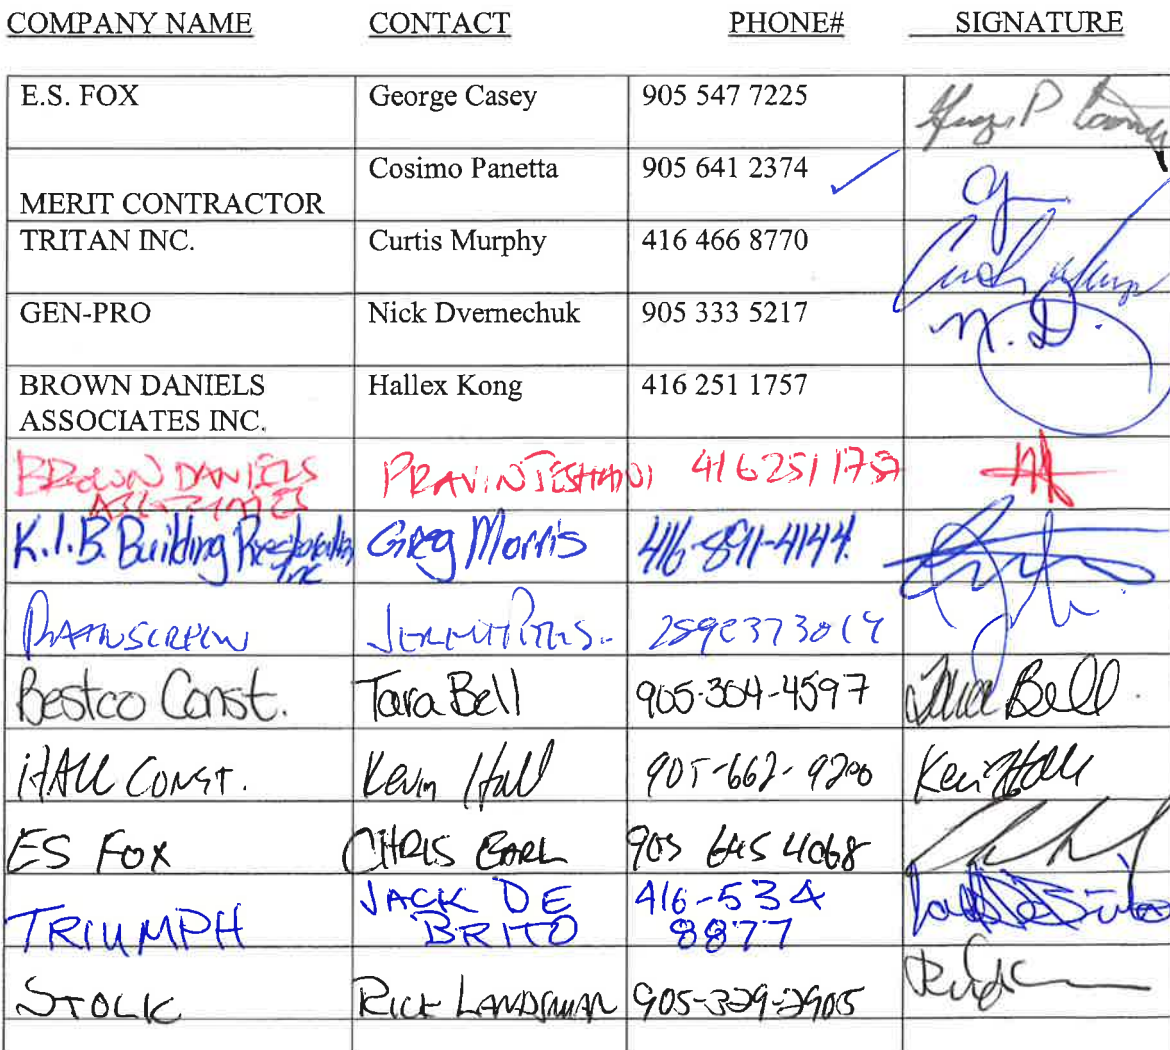 COMPANY NAME CONTACT PHONE# SIGNATURE
E.S. FOX George Casey 905 547 7225
MERIT CONTRACTOR Cosimo Panetta 905 641 2374
TRITAN INC. Curtis Murphy 416 466 8770
GEN-PRO Nick Dvernechuk 905 333 5217 N. D.
BROWN DANIELS Hallex Kong 416 251 1757
ASSOCIATES INC.
BROWN DANIELS PRAVIN TESHANI 416 251 1757
K.I.B. Building Restoration Greg Morris 416-891-4144
Inc
2892373014
Bestco Const. Tara Bell 905-304-4597 Tara Bell
HALL CONST. Kevin Hall 905-662-9200 Kevin Hall
ES FOX CHRIS EARL 905 645 4068
TRIUMPH JACK DE 416-534
BRITO 8877
STOLK RICK LANDSMAN 905-329-2905